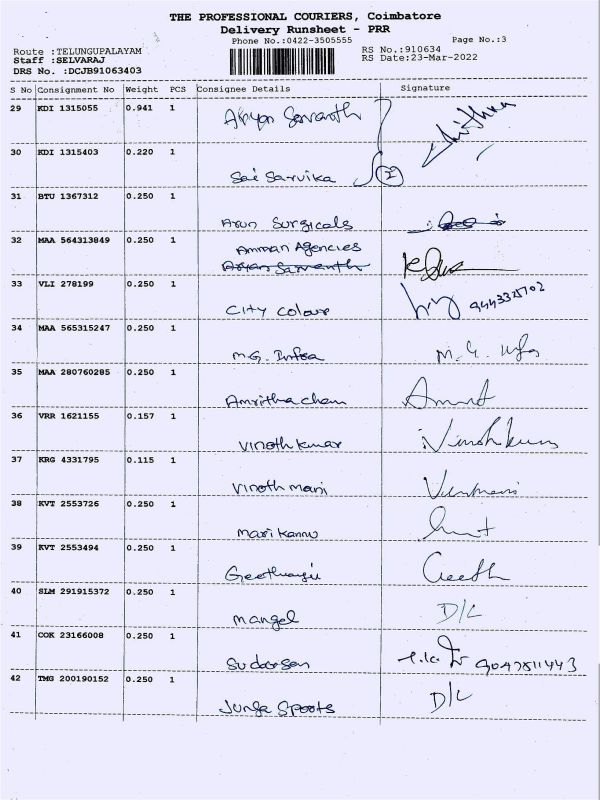 THE PROFESSIONAL COURIERS, Coimbatore
Delivery Runsheet - PRR
Phone No.:0422-3505555
Page No.:3
Route :TELUNGUPALAYAM
RS No.:910634
Staff :SELVARAJ
RS Date:23-Mar-2022
DRS No. :DCJB91063403
S No Consignment No Weight PCS Consignee Details Signature
29 KDI 1315055 0.941 1
30 KDI 1315403 0.220 1 Sai Sarvika 2
31 BTU 1367312 0.250 1 Arun Surgicals
32 MAA 564313849 0.250 1 Amman Agencies
33 VLI 278199 0.250 1 City Colour
34 MAA 565315247 0.250 1 M.G. Infra M. G. Infra
35 MAA 280760285 0.250 1 Amritha cham
36 VRR 1621155 0.157 1 Vinoth kumar Vinoth kumar
37 KRG 4331795 0.115 1 Vinoth mani
38 KVT 2553726 0.250 1 Mari kannu
39 KVT 2553494 0.250 1 Geeth
40 SLM 291915372 0.250 1 Mangel D/L
41 COK 23166008 0.250 1 Sudarsan
42 TMG 200190152 0.250 1 Junga Sports D/L